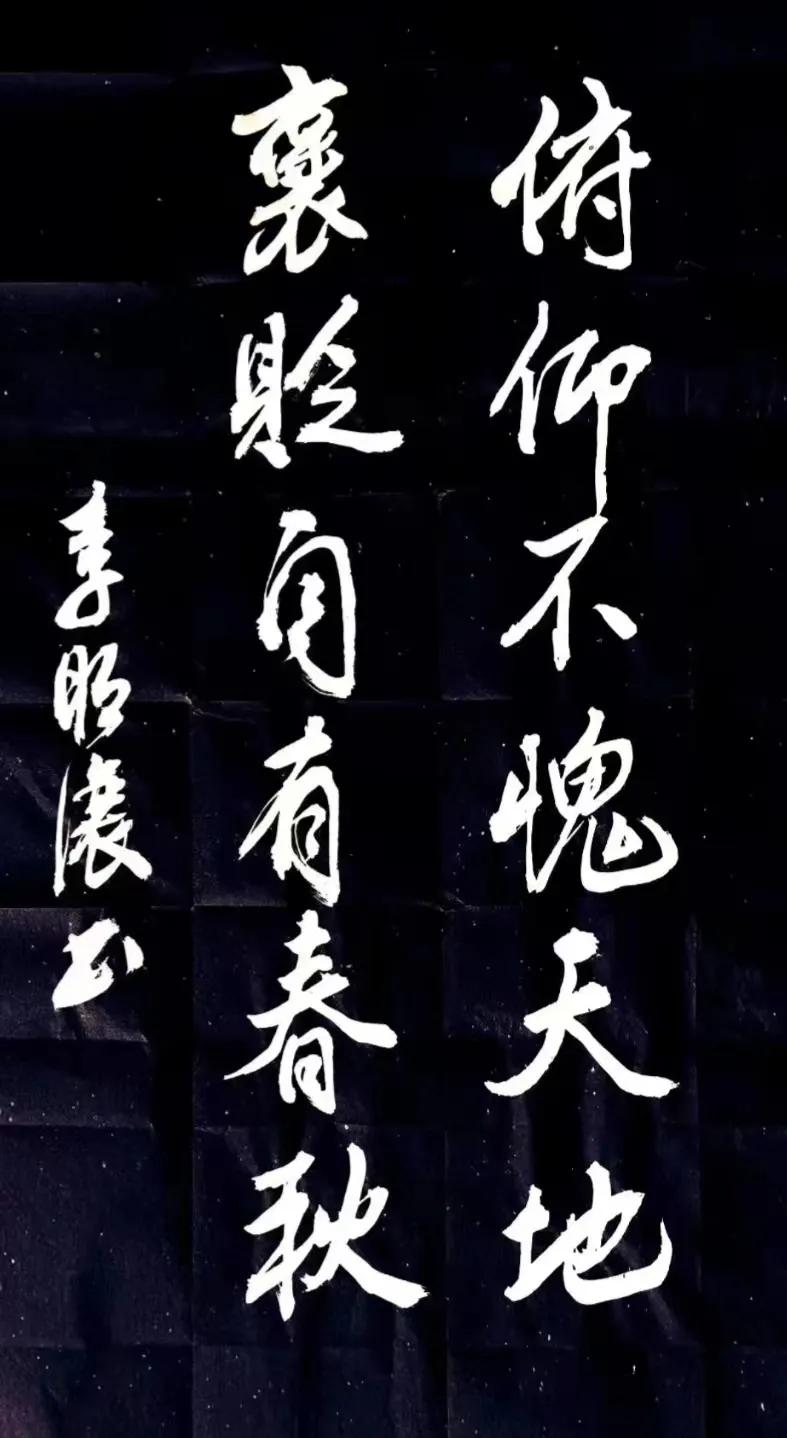 俯仰不愧天地
褒贬自有春秋
李明濃书